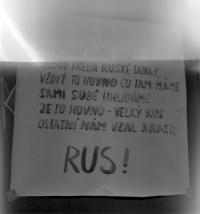 TŘEBA RUSKÉ TANKY,
VŽDYŤ TO HOVNO CO TAM MÁME
SAMI SOBĚ UHLÍDÁME
JE TO HOVNO - VELKÝ KUS
OSTATNÍ NÁM VZAL BRATR
RUS!